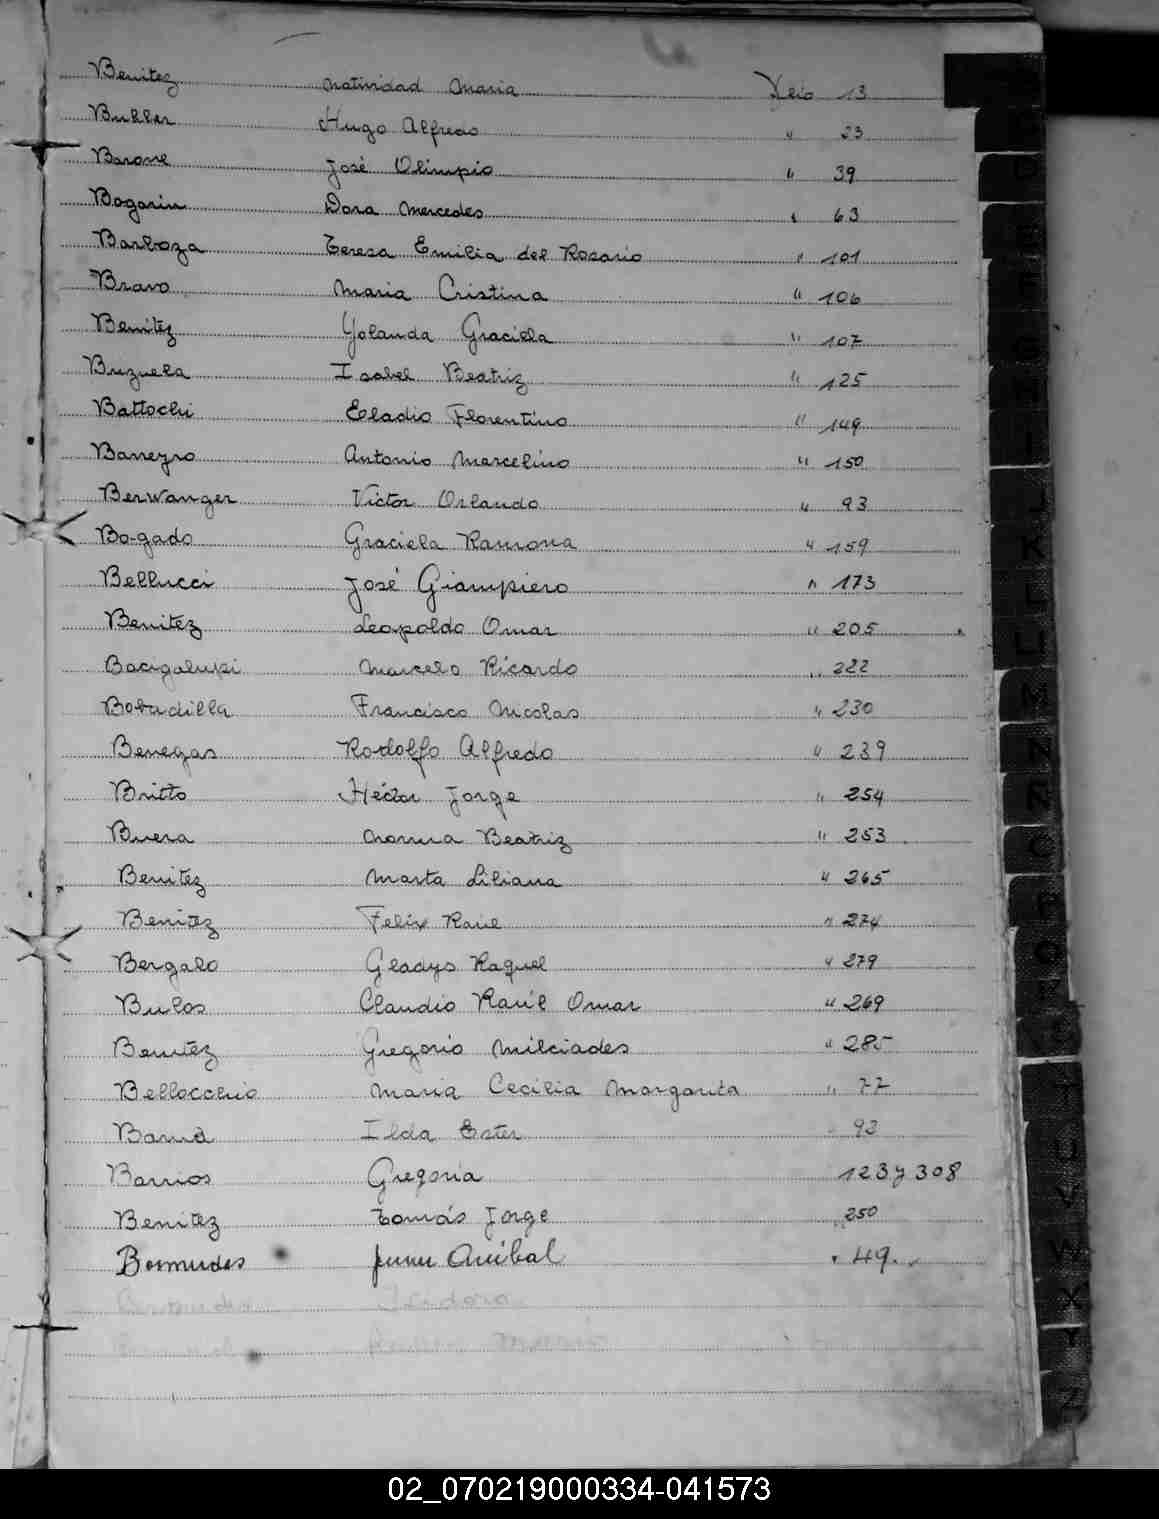 Benitez Natividad Maria Folio 13
Buller Hugo Alfredo " 23
Barone José Olimpio " 39
Bogarin Dora Mercedes " 63
Barboza Teresa Emilia del Rosario " 101
Bravo Maria Cristina " 106
Benitez Yolanda Graciela " 107
Brizuela Isabel Beatriz " 125
Battochi Eladio Florentino " 149
Barreyro Antonio Marcelino " 150
Berwanger Victor Orlando " 93
Bogado Graciela Ramona " 159
Bellucci José Giampiero " 173
Benitez Leopoldo Omar " 205
Bacigalupi Marcelo Ricardo " 222
Bobadilla Francisco Nicolas " 230
Benegas Rodolfo Alfredo " 239
Britto Héctor Jorge " 254
Buera Norma Beatriz " 253
Benitez Marta Liliana " 265
Benitez Felix Raul " 274
Bergalo Gladys Raquel " 279
Bulos Claudio Raúl Omar " 269
Benitez Gregorio Milciades " 285
Bellocchio Maria Cecilia Margarita " 77
Ilda Ester 93
Barrios Gregoria 123 y 308
Benitez Tomás Jorge " 250
Bermudes Anibal " 49
Isidora
02_070219000334-041573